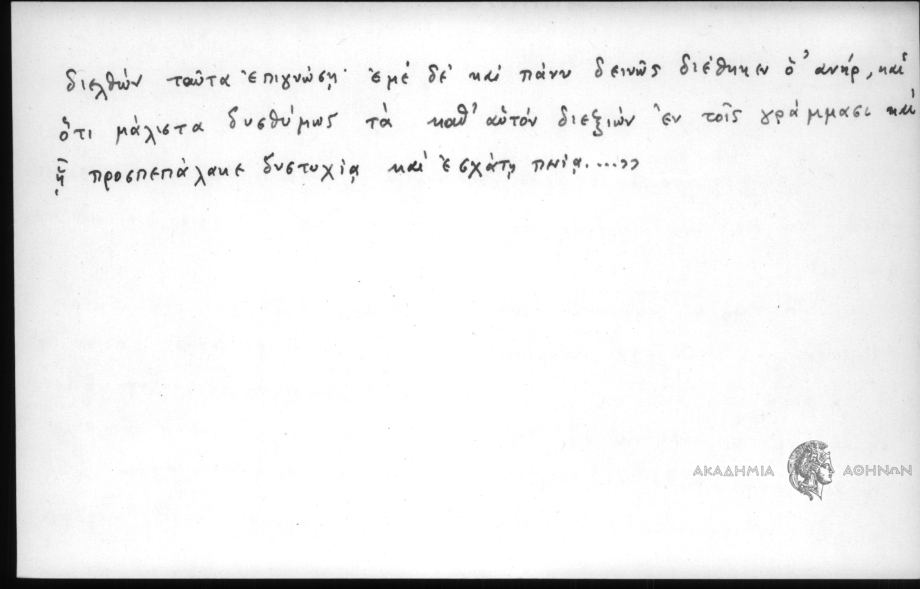 διελθών ταῦτα ἐπιγνώσῃ· ἐμέ δέ καί πάνυ δεινῶς διέθηκεν ὁ ἀνήρ, καί
ὅτι μάλιστα δυσθύμως τά καθ' αὑτόν διεξιών ἐν τοῖς γράμμασι καί
ᾗ προσπεπάλακε δυστυχίᾳ καί ἐσχάτῃ πενίᾳ.....»
ΑΚΑΔΗΜΙΑ ΑΘΗΝΩΝ